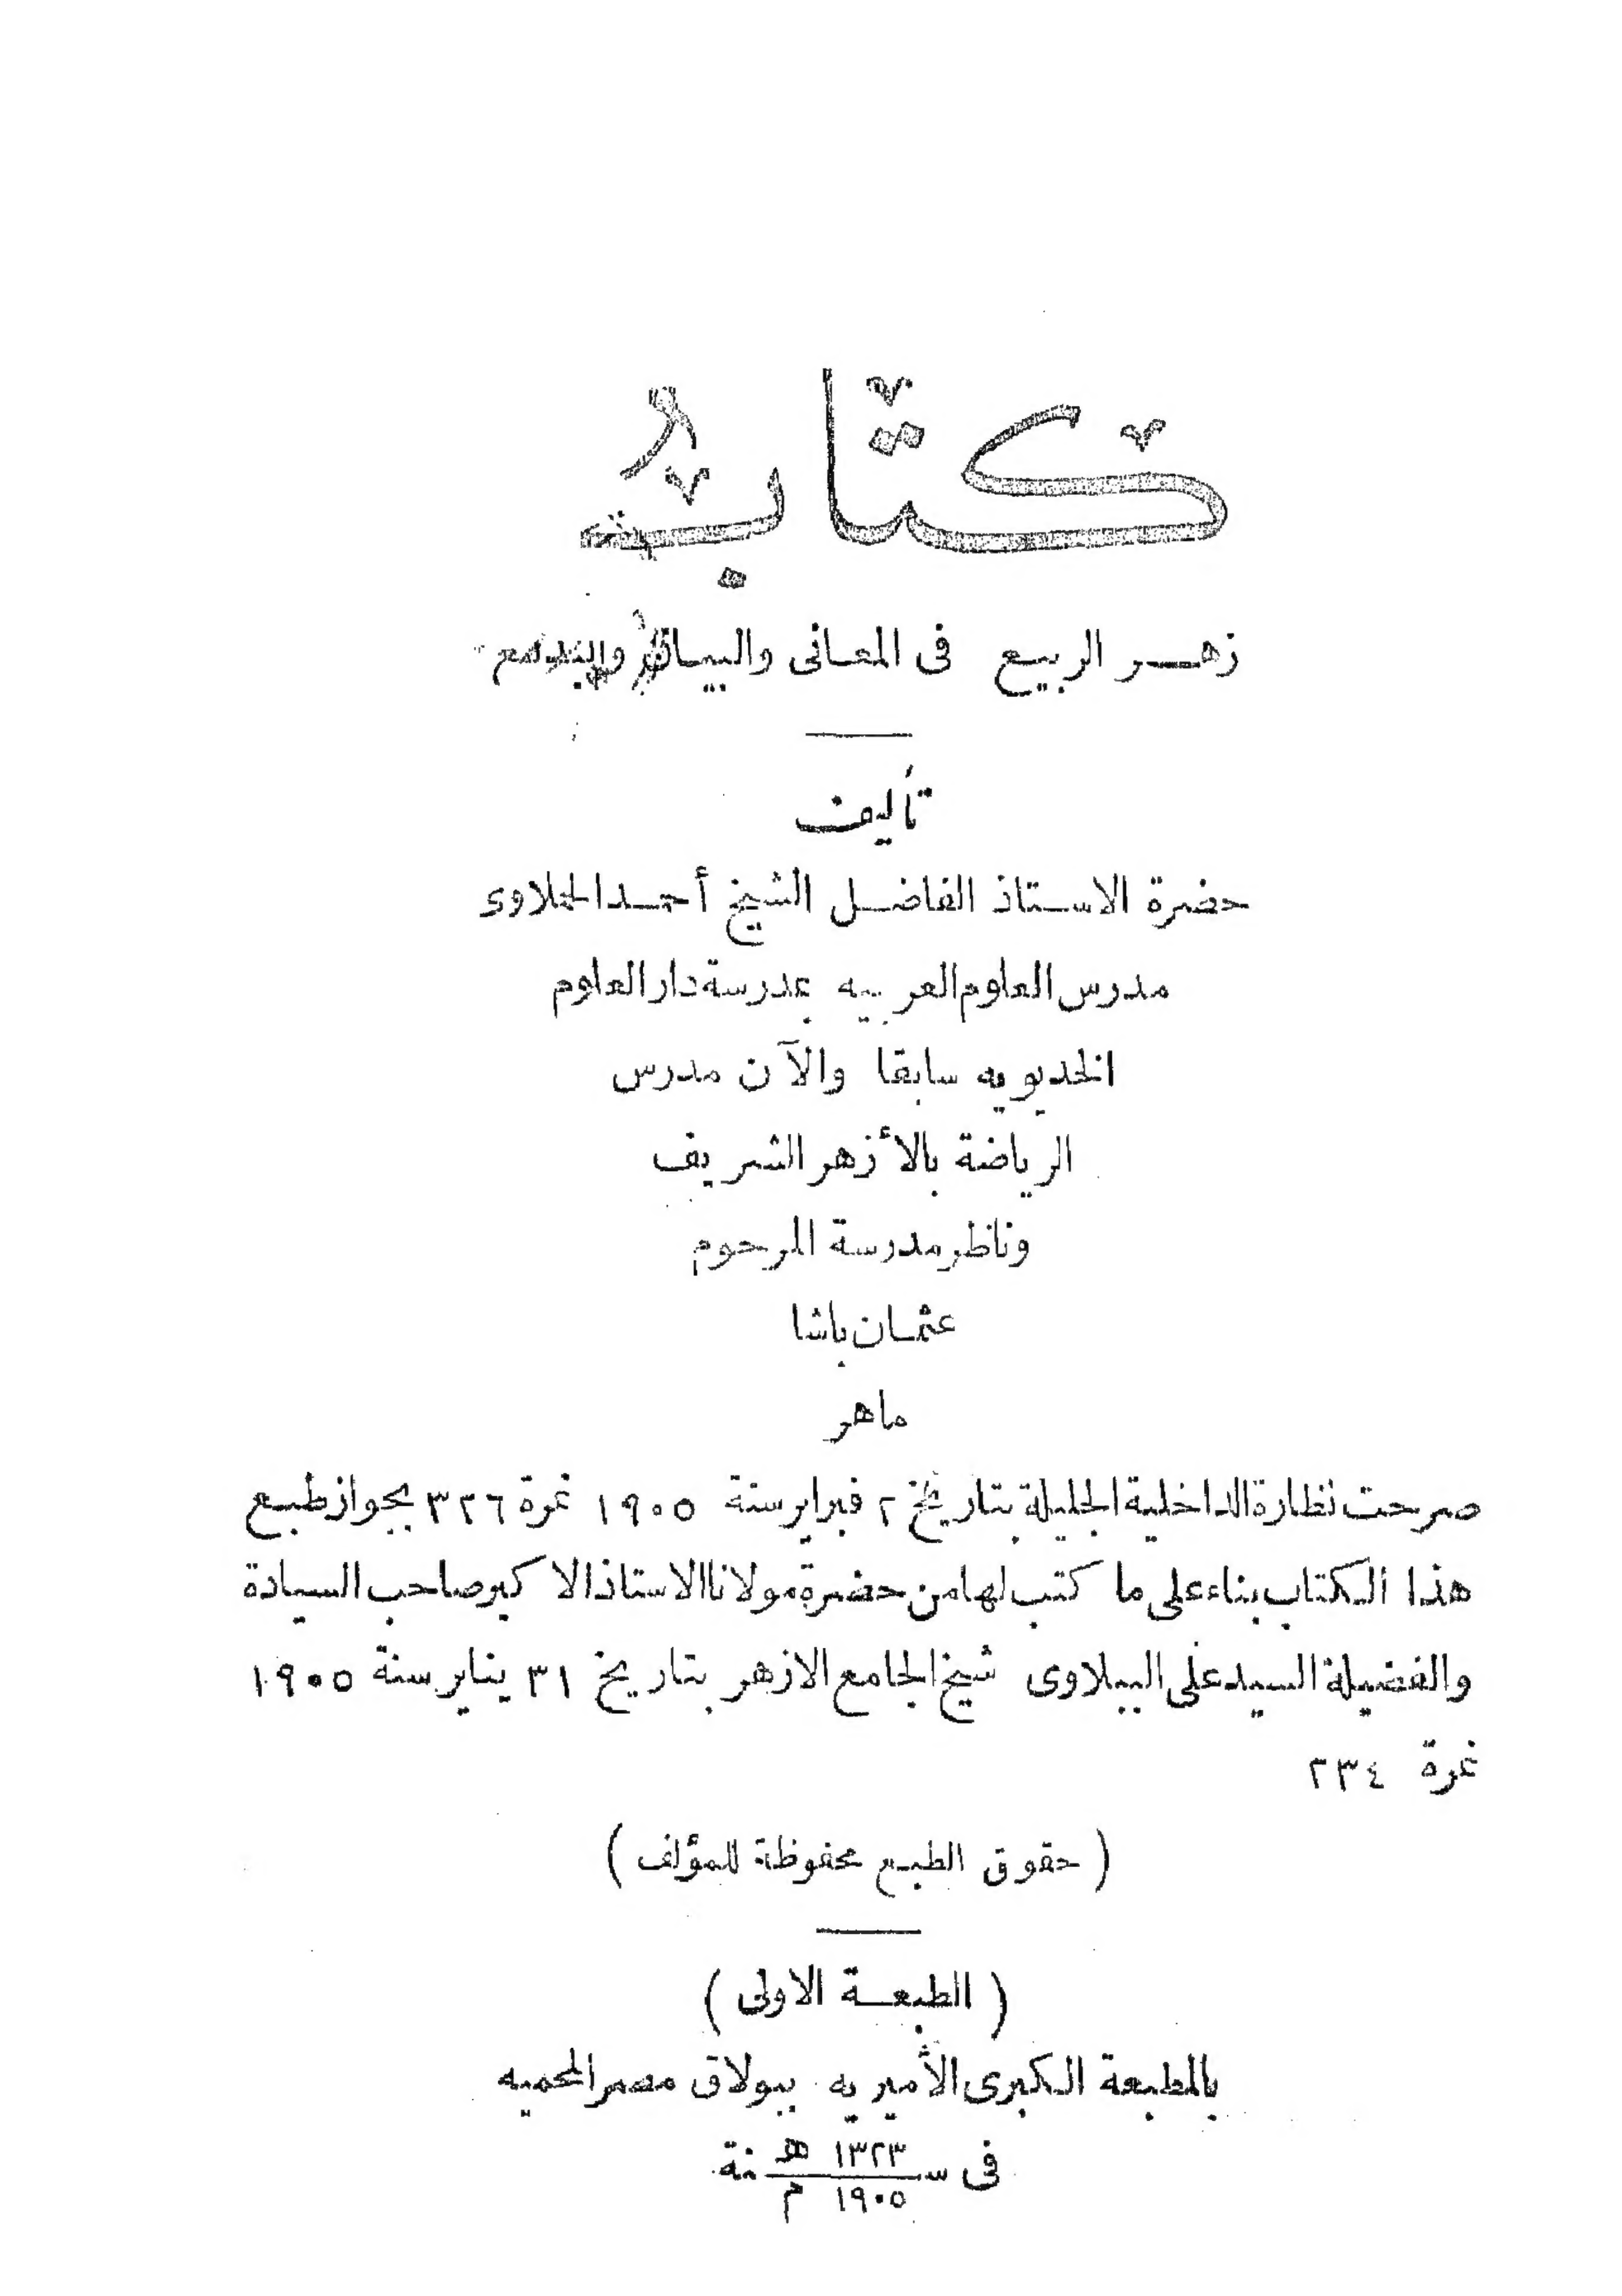 كتاب
زهر الربيع فى المعانى والبيان والبديع
تأليف
حضرة الاستاذ الفاضل الشيخ أحمد الحملاوى
مدرس العلوم العربيه بمدرسة دار العلوم
الخديويه سابقا والآن مدرس
الرياضة بالأزهر الشريف
وناظر مدرسة المرحوم
عثمان باشا
ماهر
صرحت نظارة الداخلية الجليلة بتاريخ ٢ فبراير سنة ١٩٠٥ نمرة ٣٢٦ بجواز طبع
هذا الكتاب بناء على ما كتب لها من حضرة مولانا الاستاذ الاكبر صاحب السيادة
والفضيلة السيد على الببلاوى شيخ الجامع الازهر بتاريخ ٣١ يناير سنة ١٩٠٥
نمرة ٢٣٤
( حقوق الطبع محفوظة للمؤلف )
( الطبعة الاولى )
بالمطبعة الكبرى الأميريه ببولاق مصر المحميه
فى سنة ١٣٢٣ هـ
١٩٠٥ م